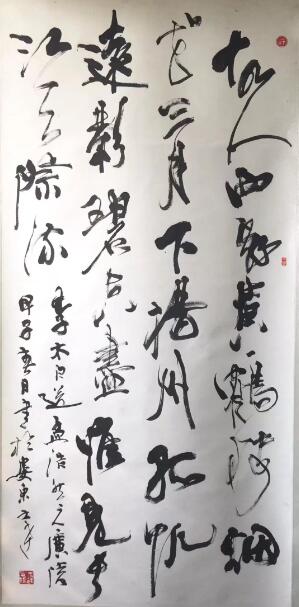 故人西辞黄鶴楼烟
花三月下揚州孤帆
遠影碧空盡惟見長
江天際流
李太白送孟浩然之廣陵
甲子春日書於婁東